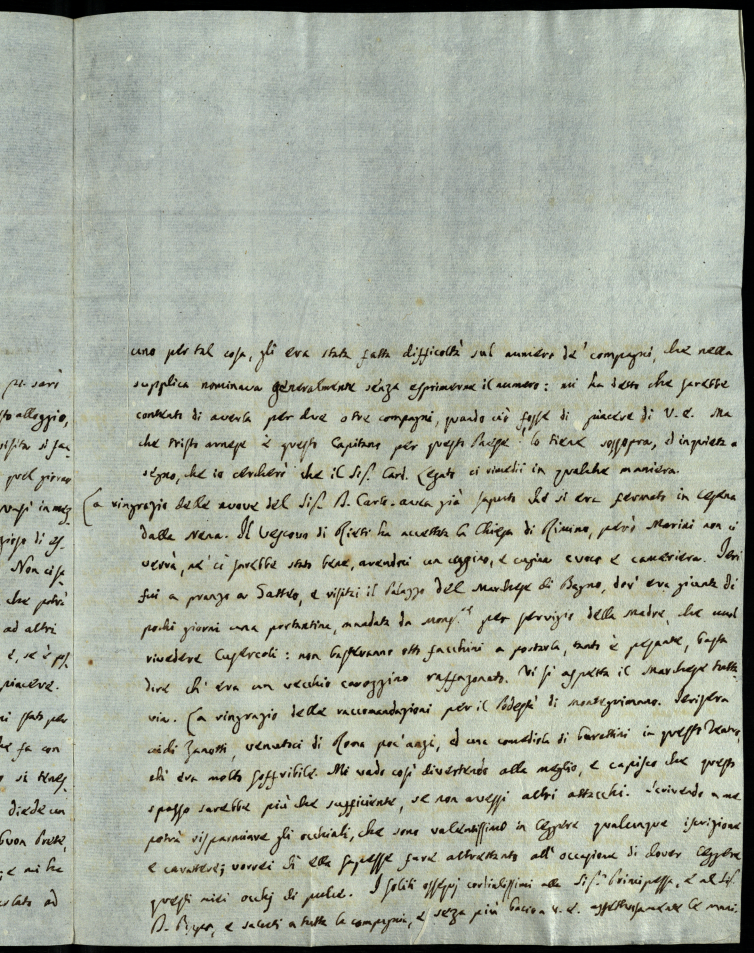 pi. sarò
sto alloggio,
quel giorno
Non ci sa
che potrà
ad altri
e, se è
piacere.
ni stato per
he fa con
o si
diede un
buon Prete,
e mi ha
ad
uno per tal cosa, gli era stata fatta difficoltà sul numero de' compagni, che nella
supplica nominava generalmente senza esprimerne il numero: mi ha detto che sarebbe
contento di averla per due o tre compagni, quando ciò fosse di piacere di V. E. Ma
che tristo arnese è questo Capitano per questo Paese! lo tiene sossopra, ed inquieta a
segno, che io cercherò che il Sig. Card. Legato ci rimedii in qualche maniera.
La ringrazio delle nuove del Sig. D. Carlo. avea già saputo che si era fermato in Cesena
dalla Nena. Il Vescovo di Rieti ha accettata la Chiesa di Rimino, però Marini non ci
verrà, nè ci sarebbe stato bene, avendoci un cuggino, e cugina cuoco e cameriera. Ieri
fui a pranzo a Gatteo, e visitai il Palazzo del Marchese di Bagno, dov' era giunta di
pochi giorni una portantina, mandata da Mons.re per servigio della Madre, che vuol
rivedere Cusercoli: non bastevanno otto facchini a portarla, tanto è pesante, basta
dire ch' era un vecchio carozzino raffazonato. Vi si aspetta il Marchese tutta-
via. La ringrazio delle raccomandazioni per il Podestà di Montegrimano. Ierisera
vidi Zanotti, venutoci di Roma poc' anzi, ed una comediola di burattini in questo Teatro,
ch' era molto soffribile. Mi vado così divertendo alla meglio, e capisco che questo
spasso sarebbe più che sufficiente, se non avessi altri attacchi. Scrivendo a me
potrà risparmiare gli occhiali, che sono valentissimo in leggere qualunque iscrizione
e carattere; vorrei ch' ella sapesse fare altrettanto all' occasione di dover leggere
questi miei occhj di pulce. I soliti ossequj cordialissimi alla Sig.a Principessa, e al Sig.
D. e saluti a tutta la compagnia, e senza più bacio a V. E. affettuosamente le mani.